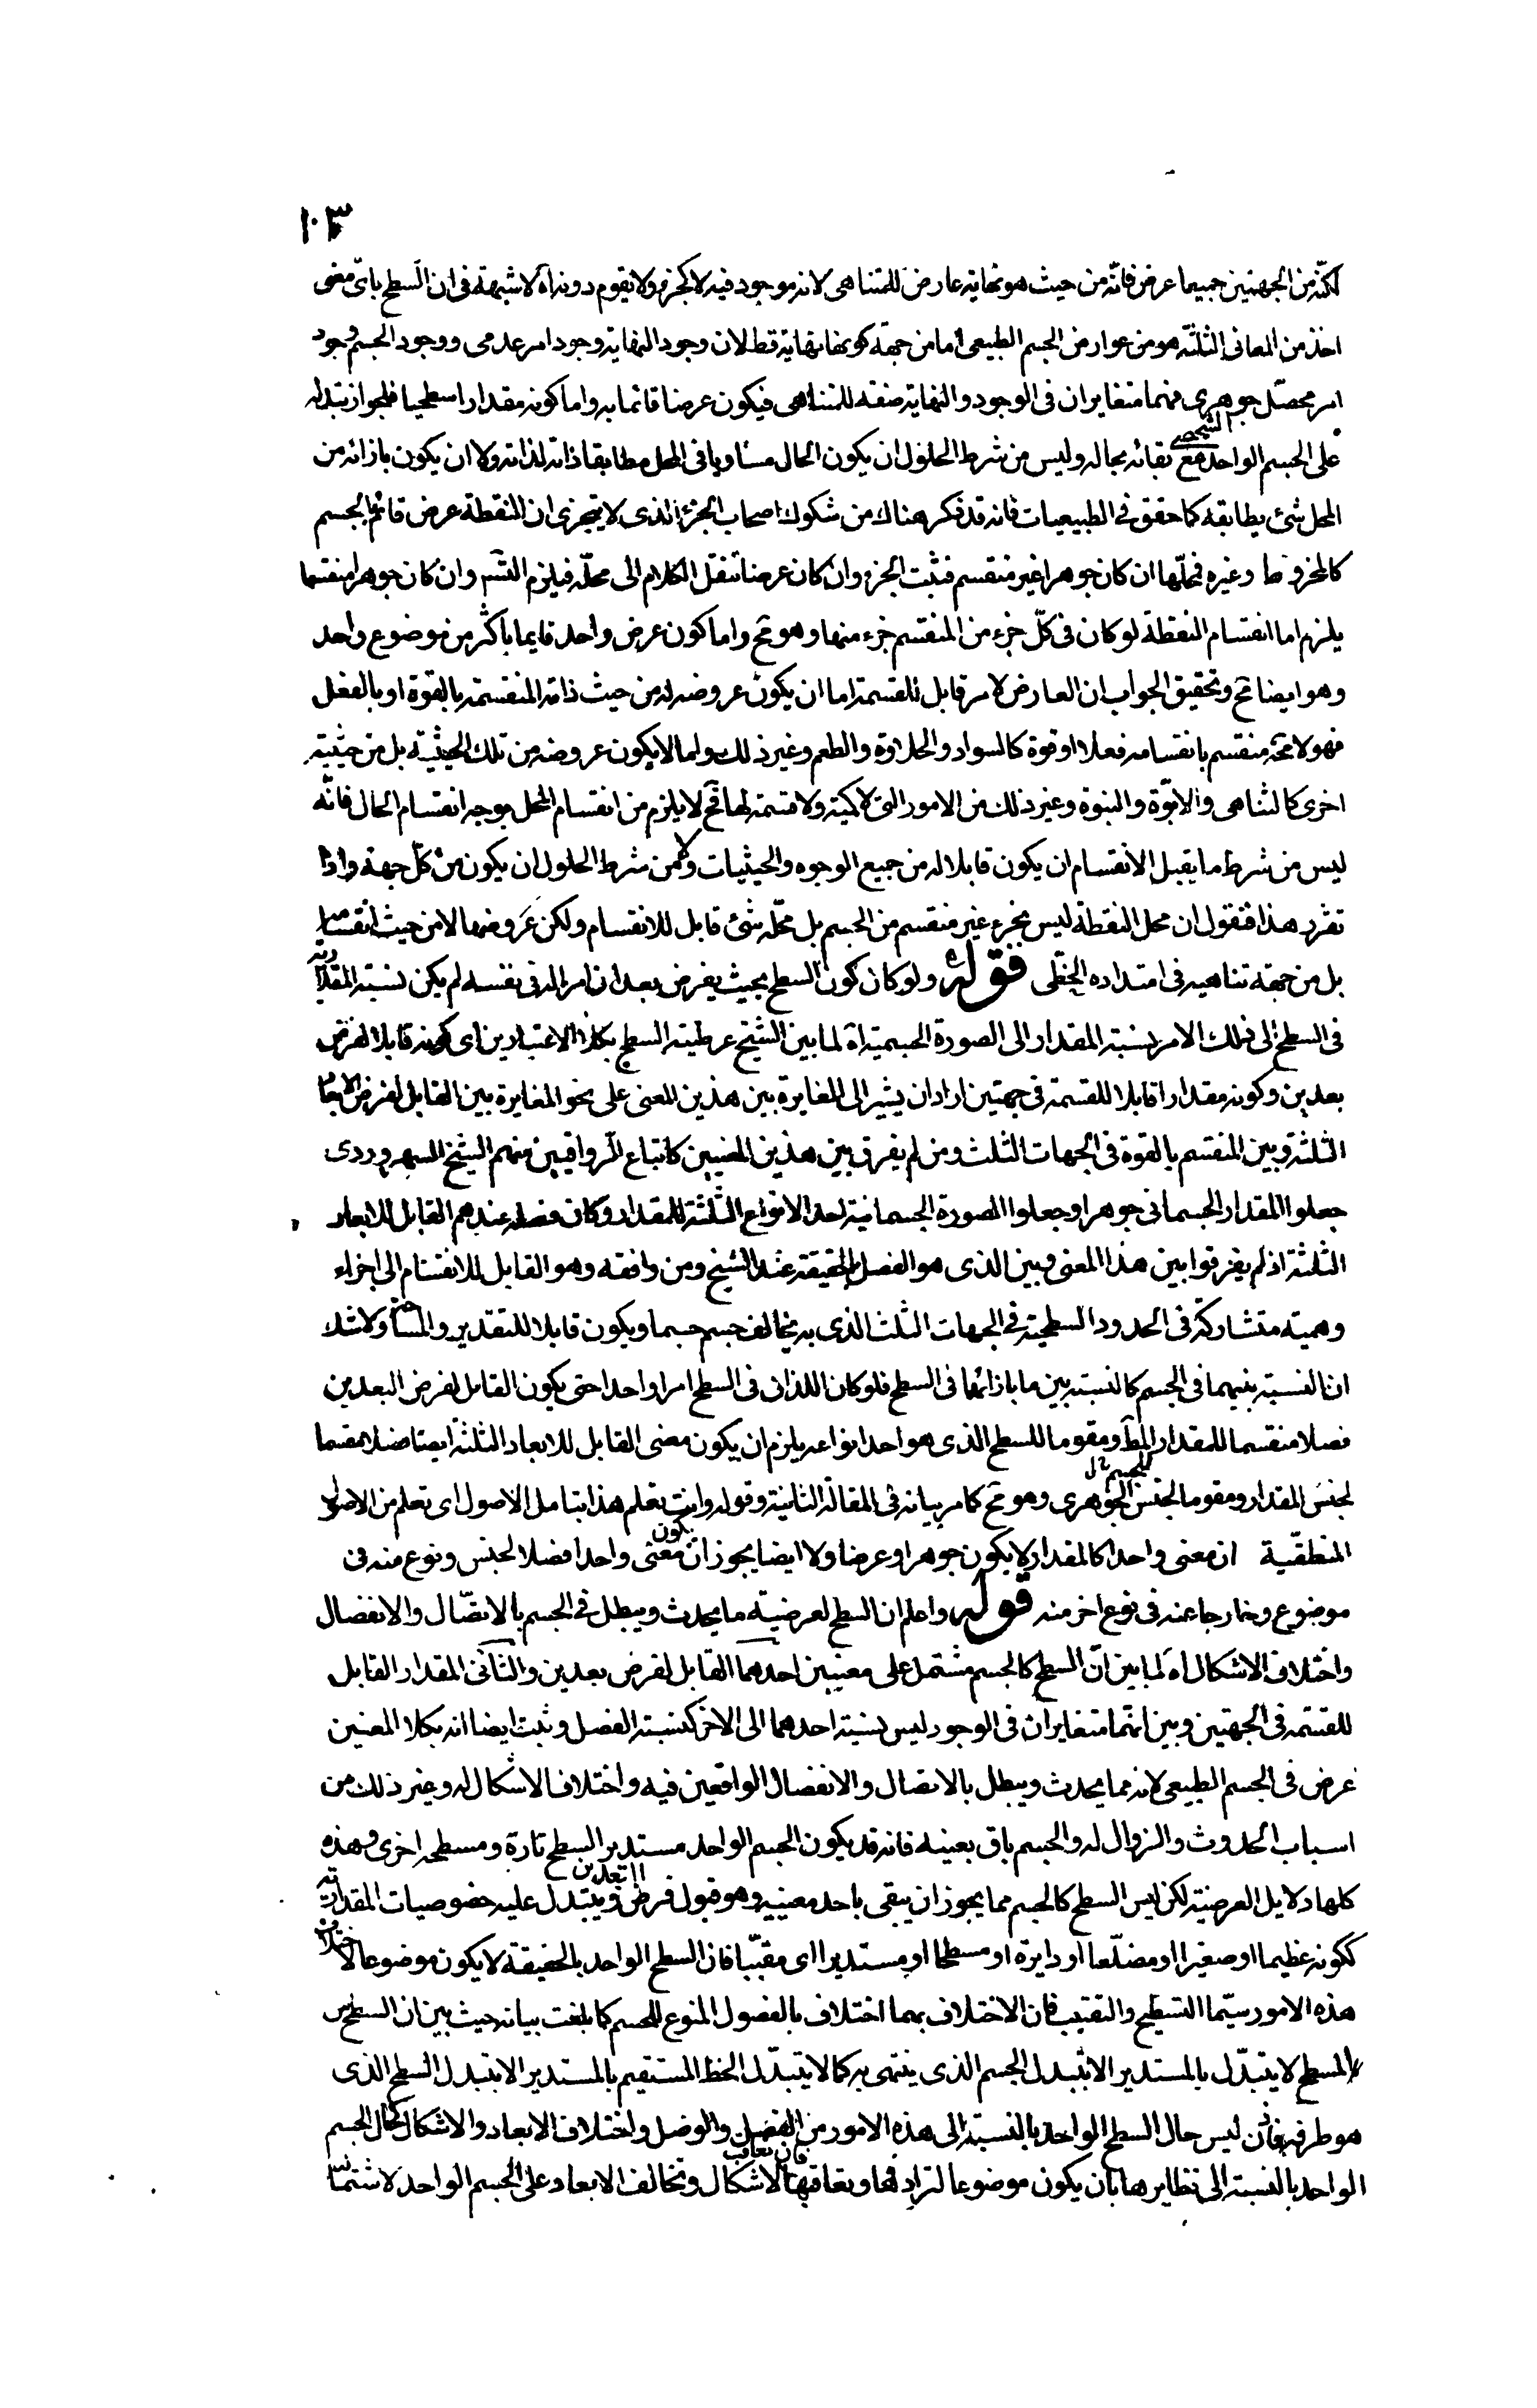 ١٠٣
لكنه من الجهتين جميعا عرض فانه من حيث هو نهاية عارض للمتناهى لانه موجود فيه لا كجزء ولا يقوم دونه آه لا شبهة فى ان السطح باىّ معنى
اخذ من المعانى الثلثة هو من عوارض الجسم الطبيعى اما من جهة كونها نهاية فقط لان وجود النهاية وجود امر عدمى ووجود الجسم وجود
امر محصّل جوهرى فهما متغايران فى الوجود والنهاية صفة للمتناهى فيكون عرضا قائما به واما كونه مقدارا سطحيا فلجواز تبدله
على الجسم الواحد الشخصى مع بقائه بحاله وليس من شرط الحلول ان يكون الحال مساويا فى المحل مطابقا ذاته لذاته ولا ان يكون بازائه من
المحل شئ يطابقه كما حقق فى الطبيعيات فانه قد ذكر هناك من شكوك اصحاب الجزء الذى لا يتجزى ان النقطة عرض قائم بالجسم
كالمخروط وغيره فمحلّها ان كان جوهرا غير منقسم فثبت الجزء وان كان عرضا ننقل الكلام الى محلّه فيلزم التس وان كان جوهرا منقسما
يلزم اما انقسام النقطة لو كان فى كلّ جزء من المنقسم جزء منها وهو مح واما كون عرض واحد قايما باكثر من موضوع واحد
وهو ايضا مح وتحقيق الجواب ان العارض لامر قابل للقسمة اما ان يكون عروضه له من حيث ذاته المنقسمة بالقوة او بالفعل
فهو لا محة منقسم بانقسامه فعلا او قوة كالسواد والحلاوة والطعم وغير ذلك واما لا يكون عروضه من تلك الحيثية بل من حيثية
اخرى كالتناهى والابوّة والبنوة وغير ذلك من الامور التى لا كمية ولا قسمة لها فح لا يلزم من انقسام المحل بوجه انقسام الحال فانّه
ليس من شرط ما يقبل الانقسام ان يكون قابلا له من جميع الوجوه والحيثيات ولا من شرط الحلول ان يكون من كلّ جهة واذا
تقرر هذا فنقول ان محل النقطة ليس بجزء غير منقسم من الجسم بل محلّه شئ قابل للانقسام ولكن عروضها لا من حيث انقسامه
بل من جهة تناهيه فى امتداده الخطّى قوله ولو كان كون السطح بحيث يفرض بعدان امرا له فى نفسه لم يكن نسبة المقدارية
فى السطح الى ذلك الامر نسبة المقدار الى الصورة الجسمية آه لما بين الشيخ عرضية السطح بكلا الاعتبارين اى كونه قابلا لفرض
بعدين وكونه مقدارا قابلا للقسمة فى جهتين اراد ان يشير الى المغايرة بين هذين المعنى على نحو المغايرة بين القابل لفرض الابعاد
الثلثة وبين المنقسم بالقوة فى الجهات الثلث ومن لم يفرق بين هذين المعنيين كاتباع الرواقيين منهم الشيخ السهروردى
جعلوا المقدار الجسمانى جوهرا وجعلوا الصورة الجسمانية احد الانواع الثلثة للمقدار وكان فصله عندهم القابل للابعاد
الثلثة اذ لم يفرقوا بين هذا المعنى وبين الذى هو الفصل بالحقيقة عند الشيخ ومن وافقه وهو القابل للانقسام الى اجزاء
وهمية متشاركة فى الحدود السطحية فى الجهات الثلث الذى به يخالف جسم جسما ويكون قابلا للتقدير والمساحة ولا شك
ان النسبة بينهما فى الجسم كالنسبة بين ما بازائهما فى السطح فلو كان اللذان فى السطح امرا واحدا حتى يكون القابل لفرض البعدين
فصلا منقسما للمقدار المط ومقوما للسطح الذى هو احد انواعه يلزم ان يكون معنى القابل للابعاد الثلثة ايضا فصلا مقسما
لجنس المقدار ومقوما لجنس الجسم الجوهرى وهو مح كما مر بيانه فى المقالة الثانية وقوله وانت تعلم هذا بتامل الاصول اى تعلم من الاصول
المنطقية ان معنى واحدا كالمقدار لا يكون جوهرا وعرضا ولا ايضا يجوز ان يكون معنى واحدا فصلا لجنس ونوع منه فى
موضوع وخارجا عنه فى نوع اخر منه قوله واعلم ان السطح لعرضية ما يحدث ويبطل فى الجسم بالاتصّال والانفصال
واختلاف الاشكال اه لما بين انّ السطح كالجسم مشتمل على معنيين احدهما القابل لفرض بعدين والثانى المقدار القابل
للقسمة فى الجهتين وبين انهما متغايران فى الوجود ليس نسبة احدهما الى الاخر كنسبة الفصل وثبت ايضا انه بكلا المعنيين
عرض فى الجسم الطبيعى لانه مما يحدث ويبطل بالاتصال والانفصال الواقعين فيه واختلاف الاشكال له وغير ذلك من
اسباب الحدوث والزوال له والجسم باق بعينه فانه قد يكون الجسم الواحد مستدير السطح تارة ومسطحه اخرى وهذه
كلها دلايل العرضية لكن ليس السطح كالجسم مما يجوز ان يبقى باحد معنييه وهو قبول فرض البعدين ويتبدل عليه خصوصيات المقدارية
ككونه عظيما او صغيرا او مضلّعا او دايرة او مسطحا او مستديرا اى مقببّا فان السطح الواحد بالحقيقة لا يكون موضوعا لاختلاف
هذه الامور سيّما التسطيح والتقبيب فان الاختلاف بهما اختلاف بالفصول المنوع للجسم كما بلغت بيانه حيث بين ان السطح
المسطح لا يتبدّل بالمستدير الا بتبدل الجسم الذى ينتهى به كما لا يتبدّل الخط المستقيم بالمستدير الا بتبدل السطح الذى
هو طرفه فاذن ليس حال السطح الواحد بالنسبة الى هذه الامور من الفصل والوصل واختلاف الابعاد والاشكال كحال الجسم
الواحد بالنسبة الى نظايرها بان يكون موضوعا لترادفها وتعاقبها فان تعاقب الاشكال وتخالف الابعاد على الجسم الواحد لا